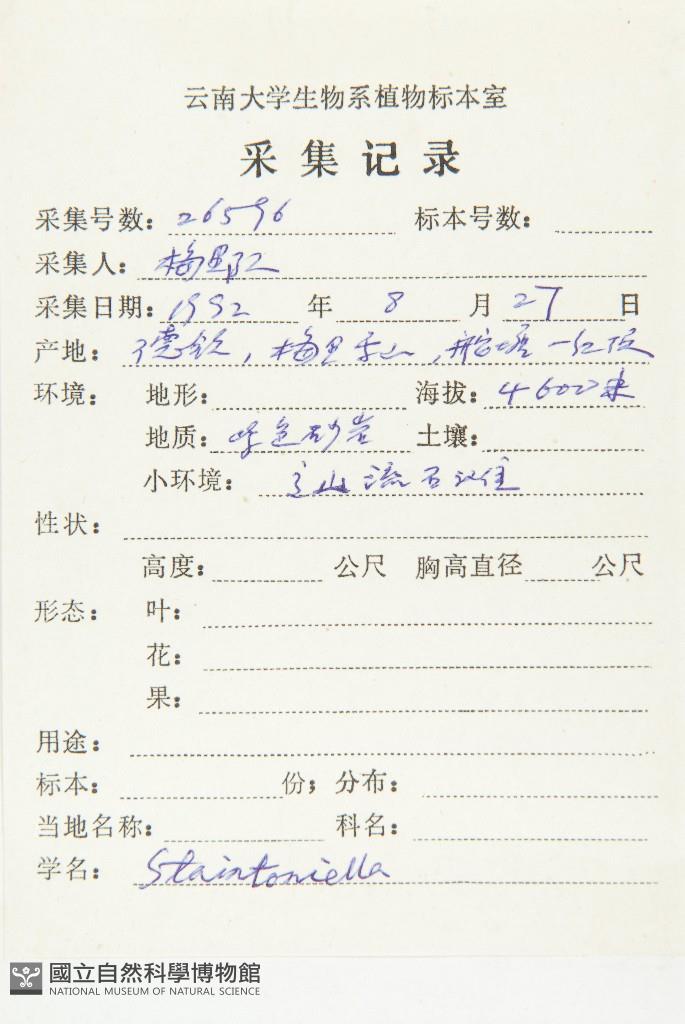 云南大学生物系植物标本室
采集记录
采集号数：26596 标本号数：
采集人：梅里队
采集日期：1992 年 8 月 27 日
产地：德钦，梅里雪山，
环境：地形： 海拔：4600米
地质：砂岩 土壤：
小环境：高山流石滩
性状：
高度： 公尺 胸高直径 公尺
形态：叶：
花：
果：
用途：
标本： 份；分布：
当地名称： 科名：
学名：Staintoniella
國立自然科學博物館
NATIONAL MUSEUM OF NATURAL SCIENCE